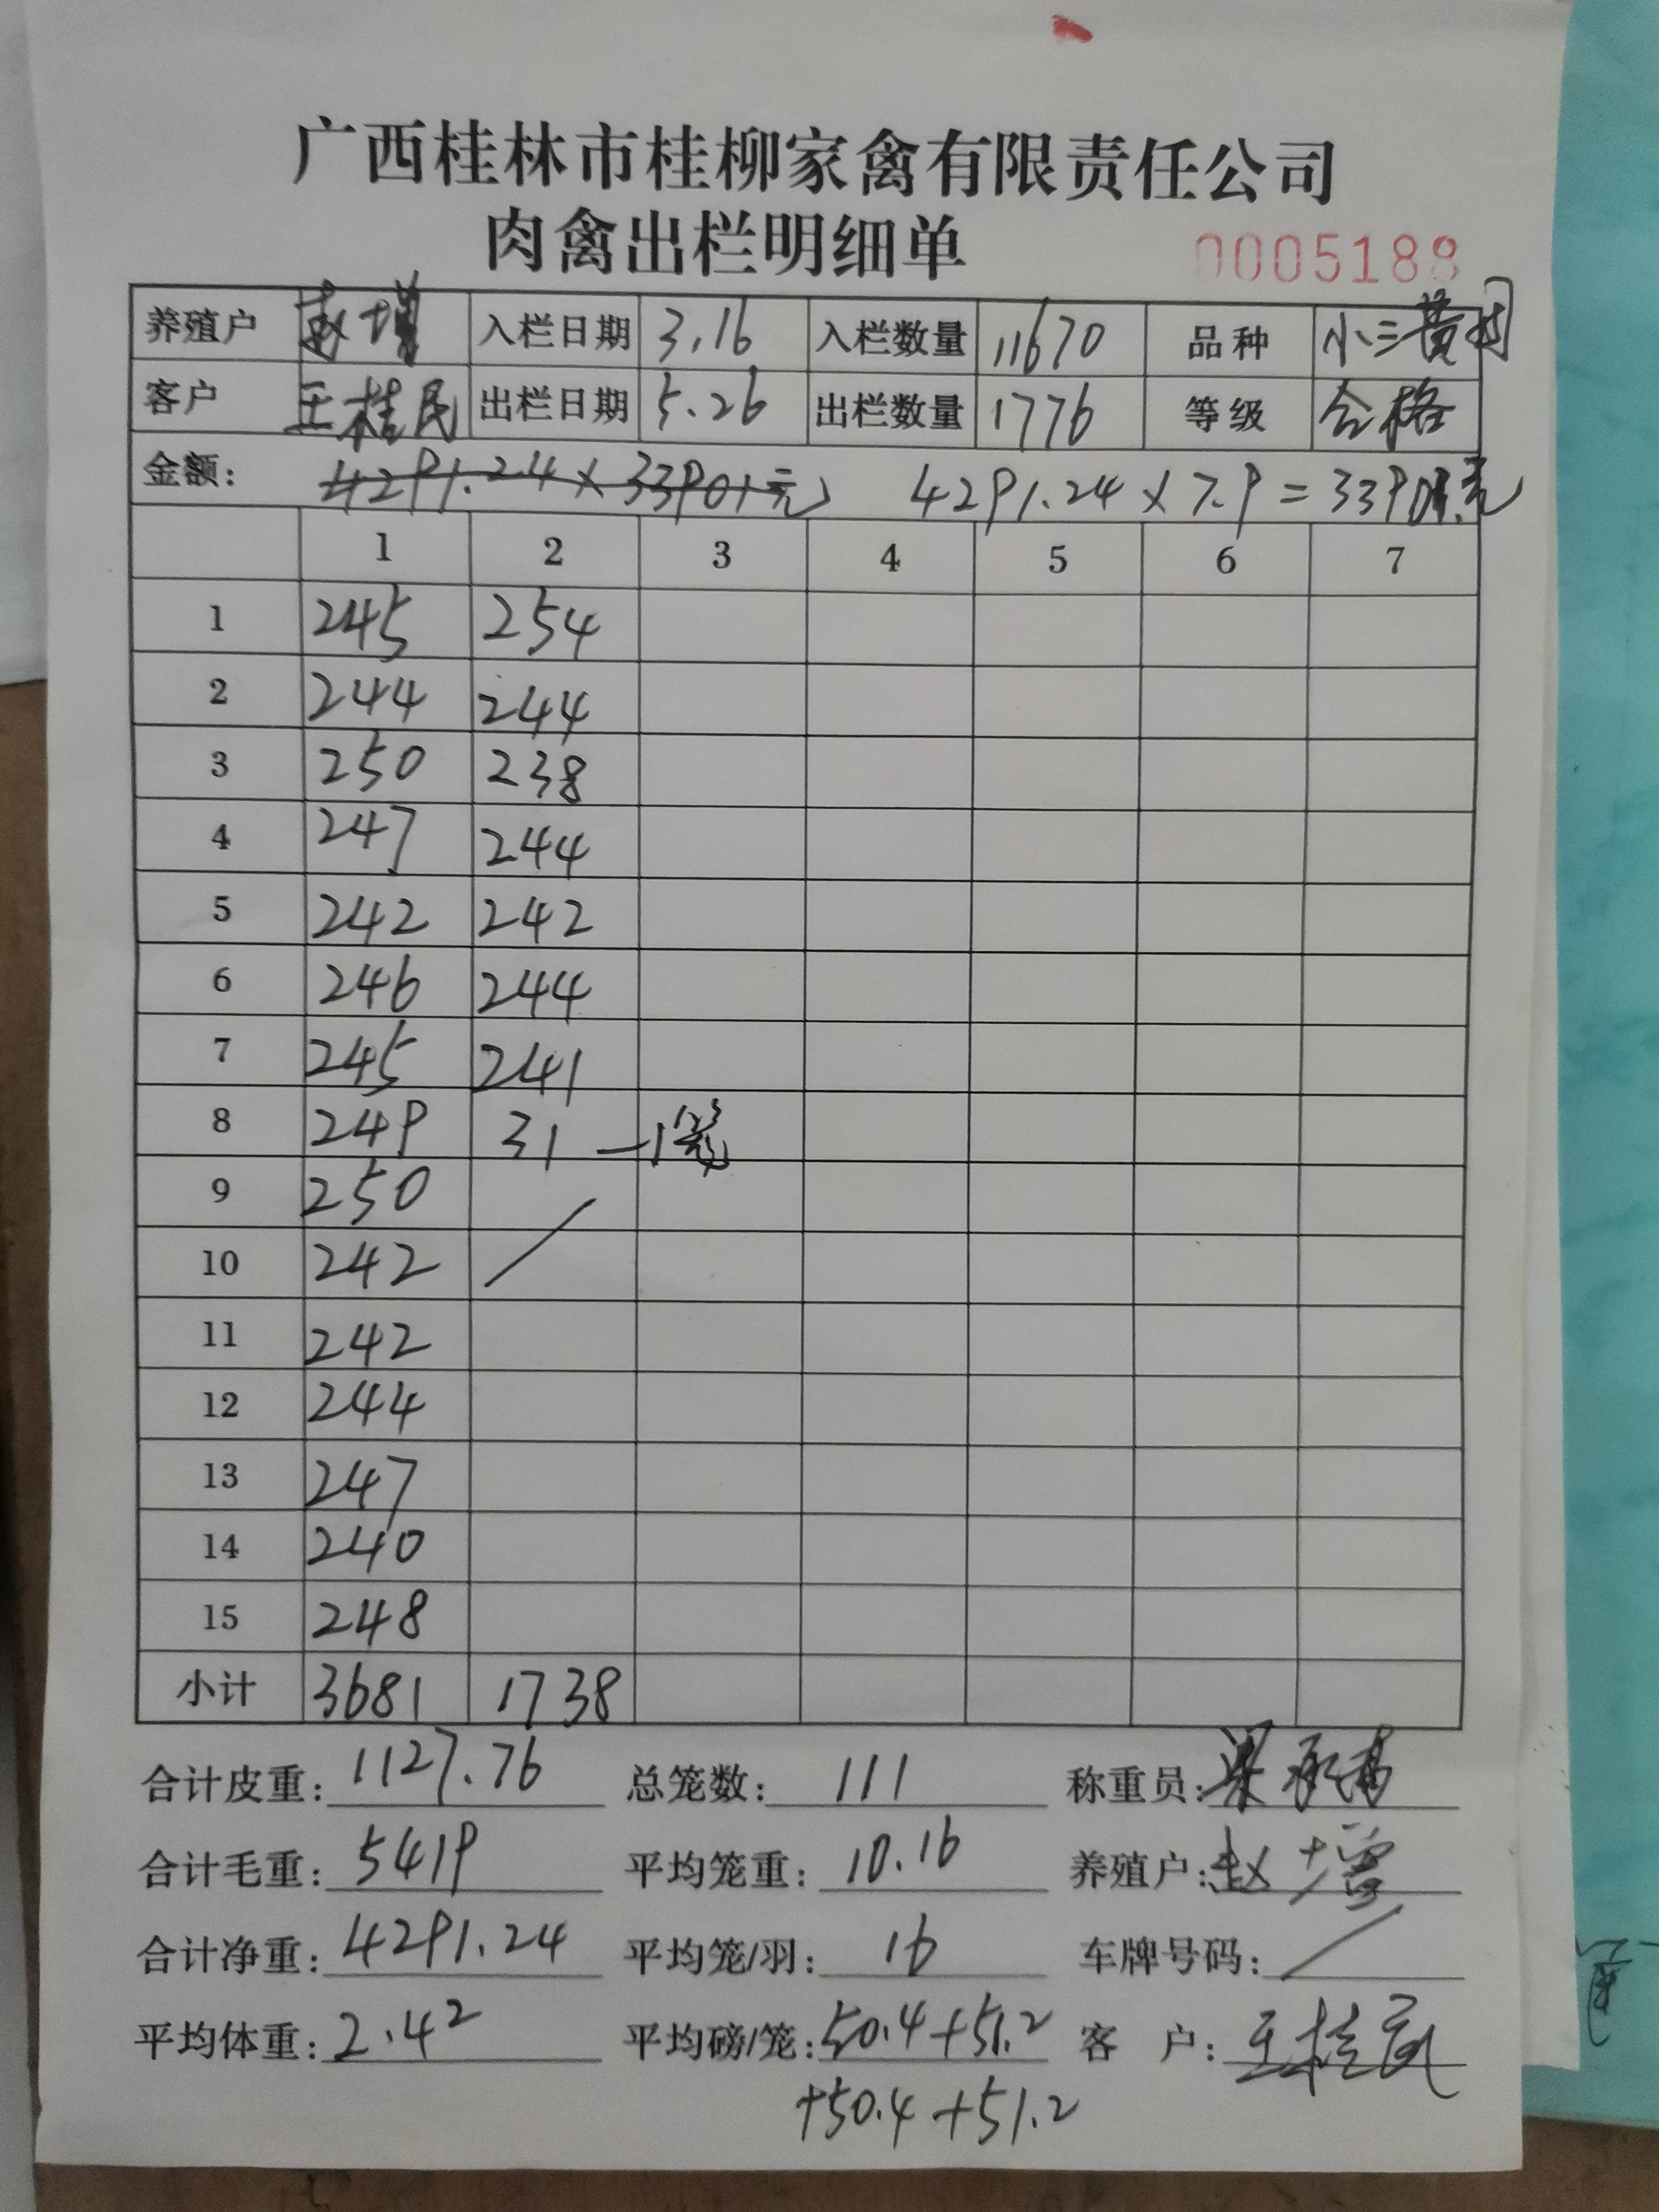 广西桂林市桂柳家禽有限责任公司
肉禽出栏明细单
0005188
养殖户 赵增 入栏日期 3.16 入栏数量 11670 品种 小三黄
客户 王桂民 出栏日期 5.26 出栏数量 1776 等级 合格
金额: 4291.24×33901元 4291.24×7.9=33901元
1 2 3 4 5 6 7
1 245 254
2 244 244
3 250 238
4 247 244
5 242 242
6 246 244
7 245 241
8 249 31 —1笼
9 250
10 242 /
11 242
12 244
13 247
14 240
15 248
小计 3681 1738
合计皮重: 1127.76 总笼数: 111 称重员:
合计毛重: 5419 平均笼重: 10.16 养殖户: 赵增
合计净重: 4291.24 平均笼/羽: 16 车牌号码: /
平均体重: 2.42 平均磅/笼: 50.4+51.2 客户: 王桂民
+50.4+51.2